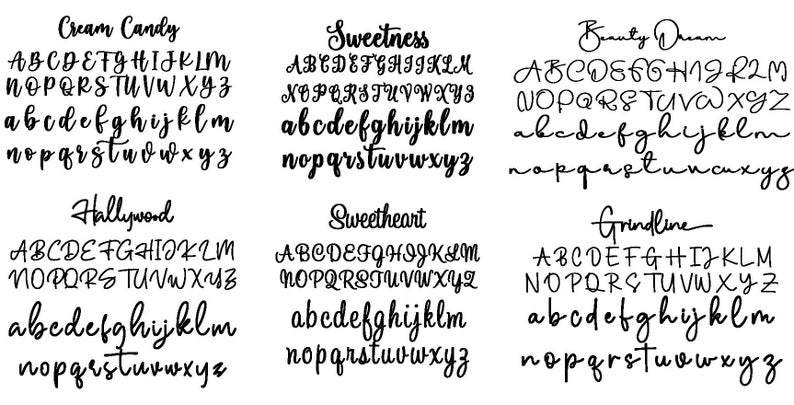 Cream Candy
ABCDEFGHIJKLM
NOPQRSTUVWXYZ
abcdefghijklm
nopqrstuvwxyz
Sweetness
ABCDEFGHIJKLM
NOPQRSTUVWXYZ
abcdefghijklm
nopqrstuvwxyz
Beauty Dream
ABCDEFGHIJKLM
NOPQRSTUVWXYZ
abcdefghijklm
nopqrstuvwxyz
Hallywood
ABCDEFGHIJKLM
NOPQRSTUVWXYZ
abcdefghijklm
nopqrstuvwxyz
Sweetheart
ABCDEFGHIJKLM
NOPQRSTUVWXYZ
abcdefghijklm
nopqrstuvwxyz
Grindline
ABCDEFGHIJKLM
NOPQRSTUVWXYZ
abcdefghijklm
nopqrstuvwxyz